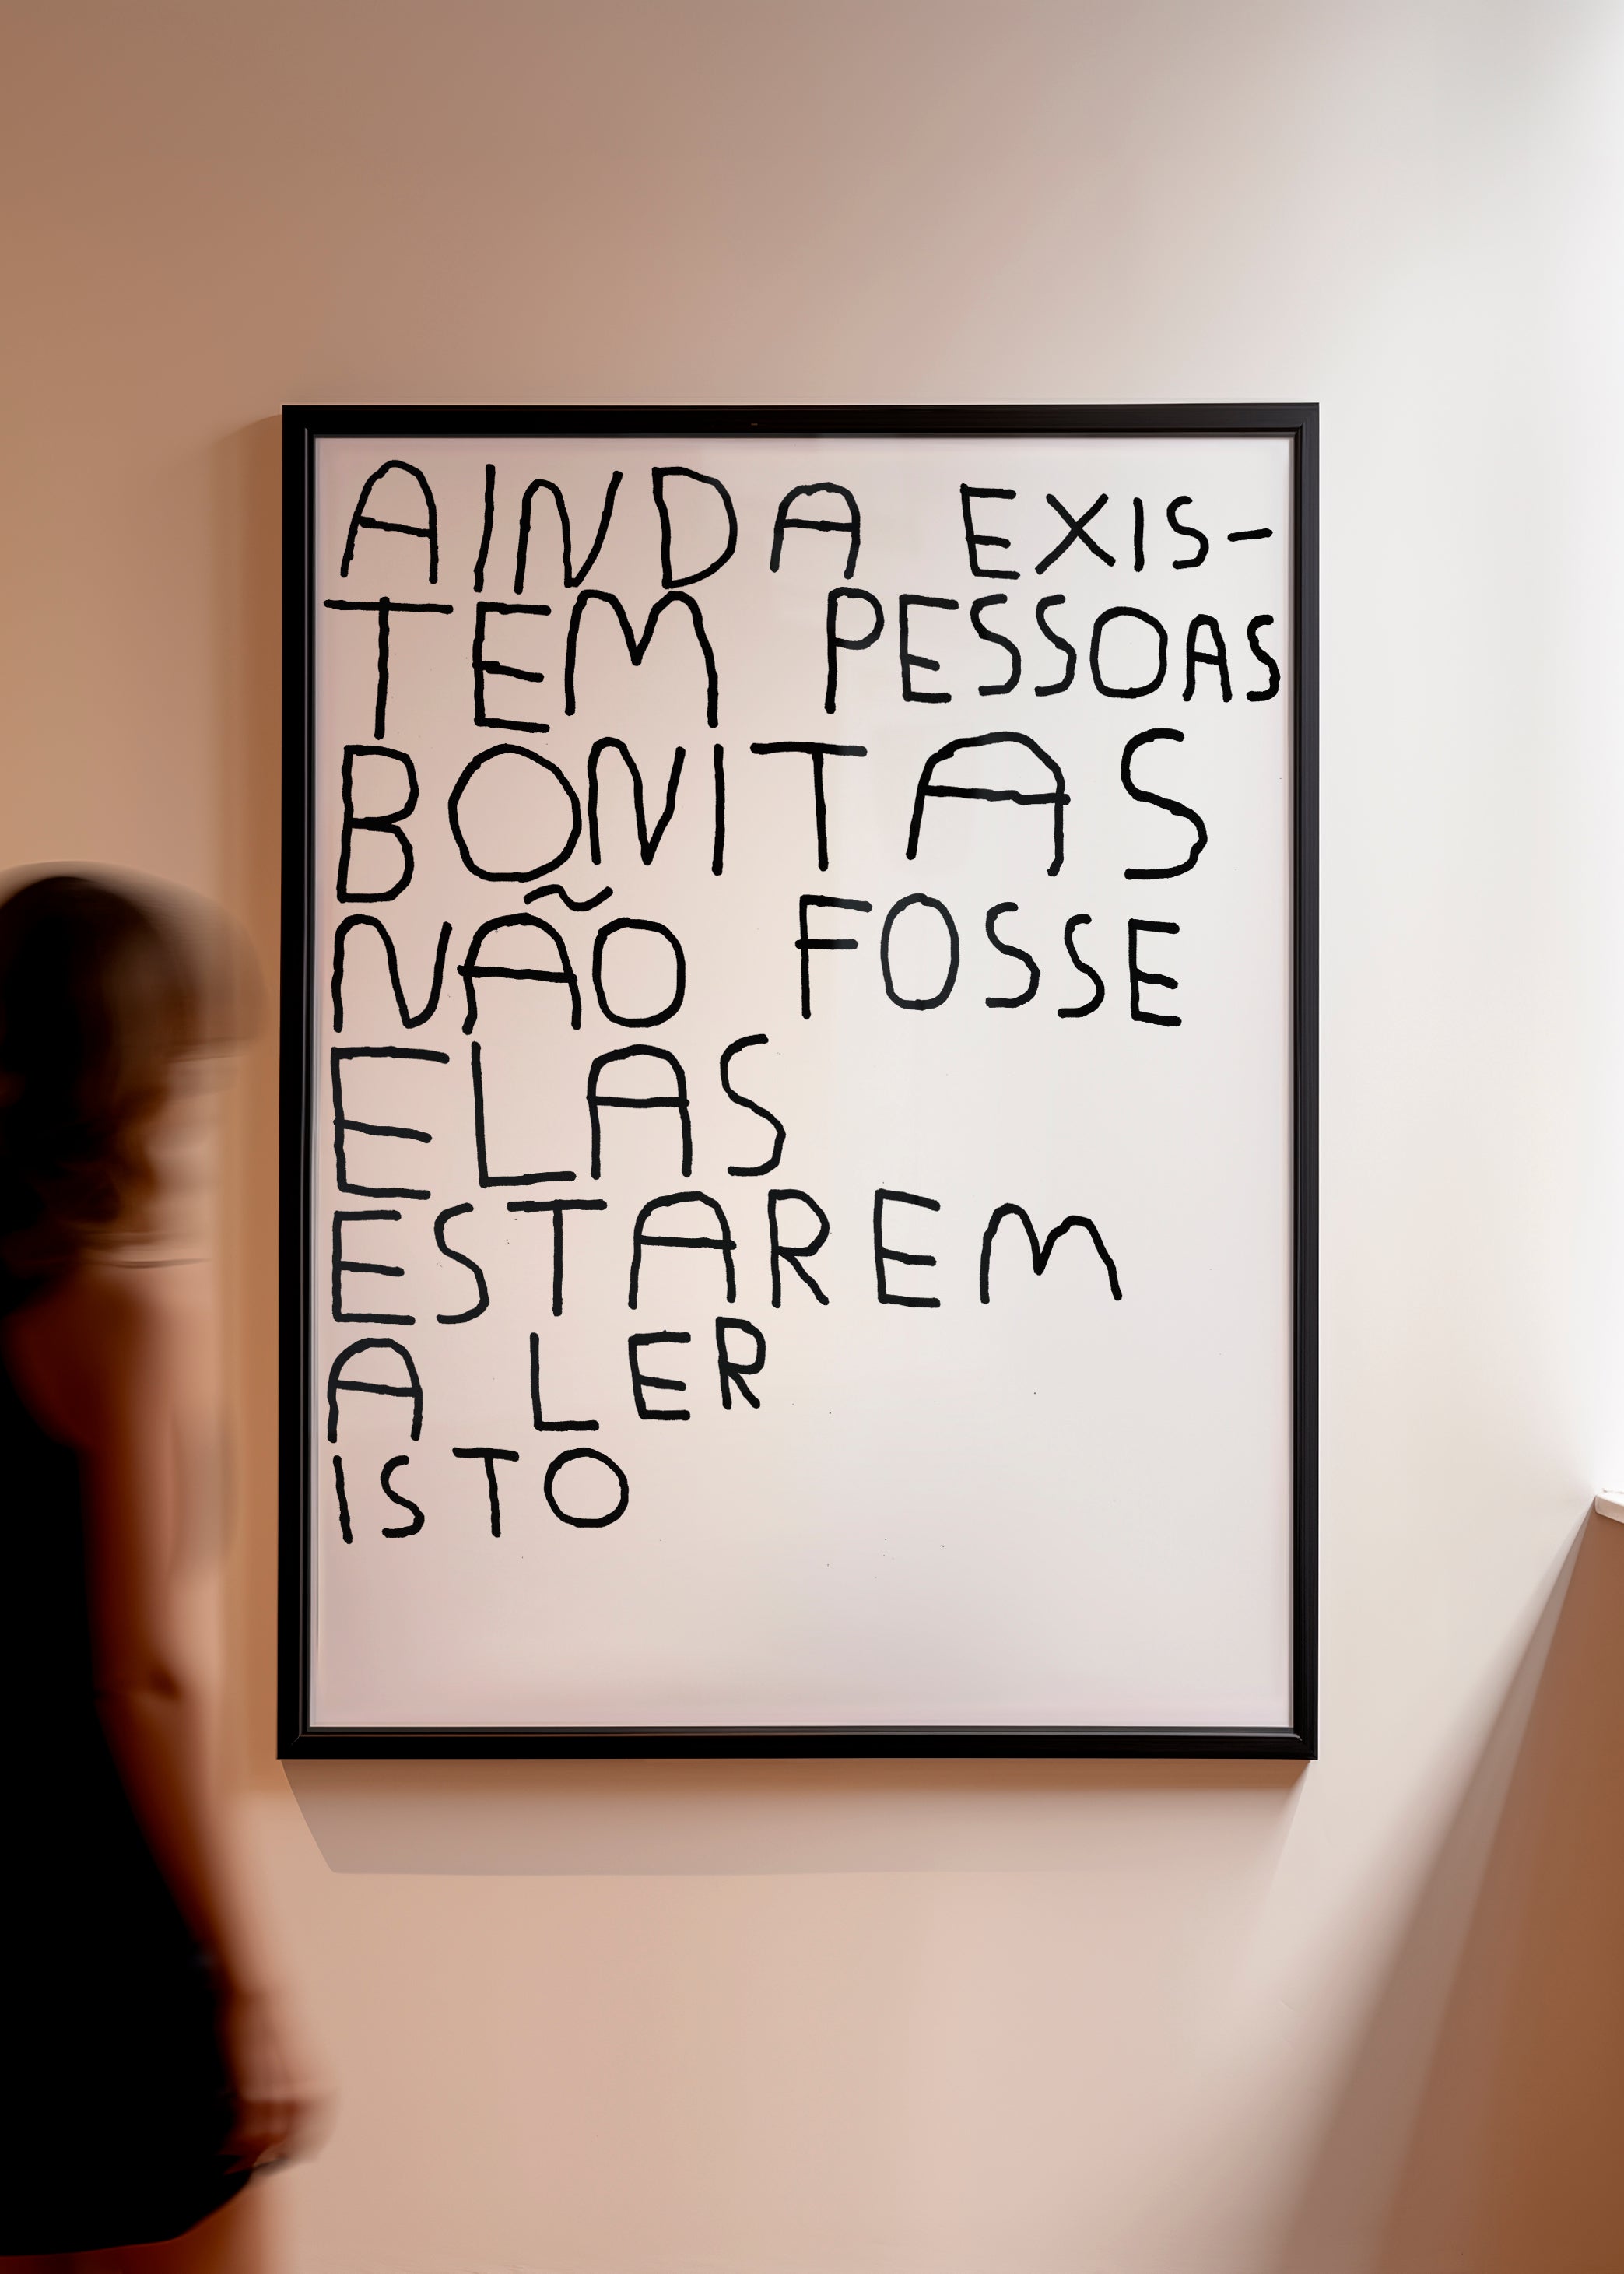 AINDA EXIS-
TEM PESSOAS
BONITAS
NÃO FOSSE
ELAS
ESTAREM
A LER
ISTO